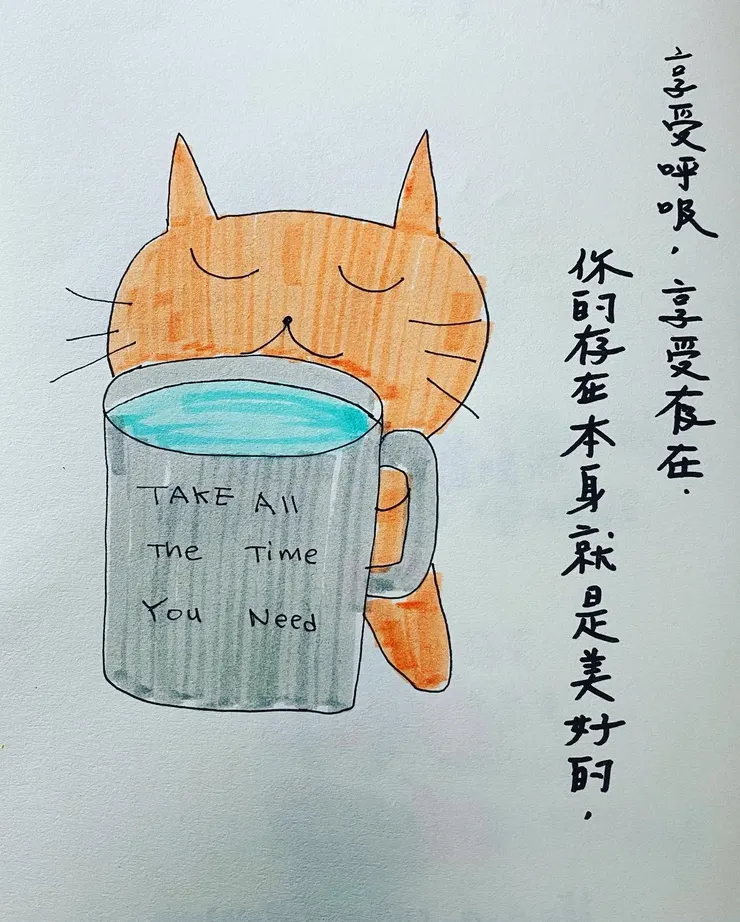 享受呼吸，享受存在.
你的存在本身就是美好的，
TAKE All
The Time
You Need